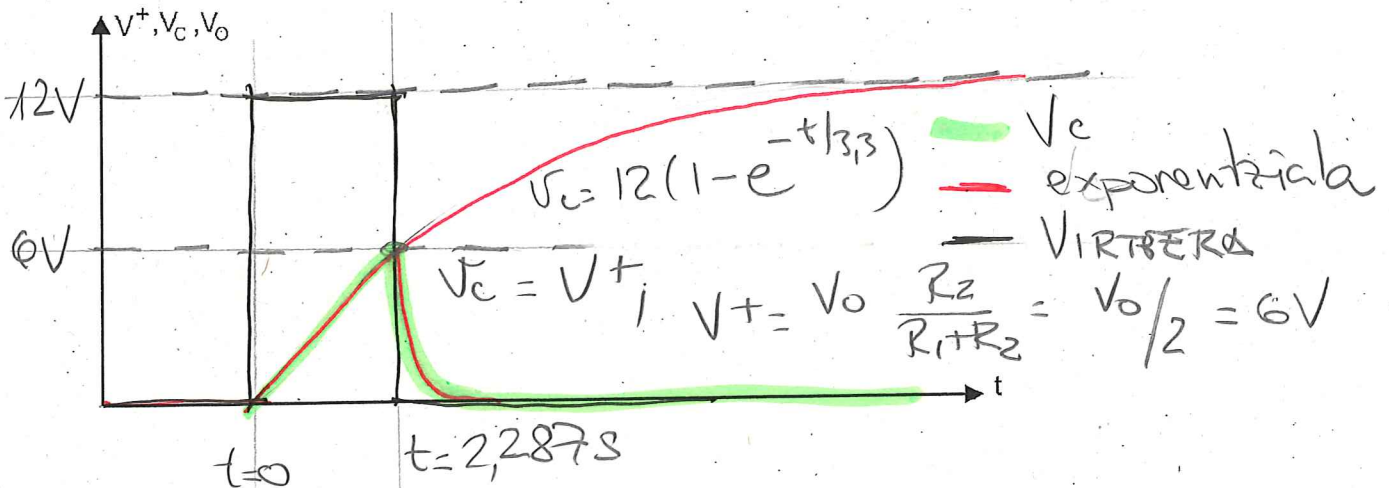 V⁺, V_C, V_O
12V
V_C
v_c = 12(1-e^{-t/3,3})
exponentziala
6V
VIRTEERA
v_c = V⁺; V⁺ = V_O R_2/(R_1+R_2) = V_O/2 = 6V
t
t=0
t=2,287s